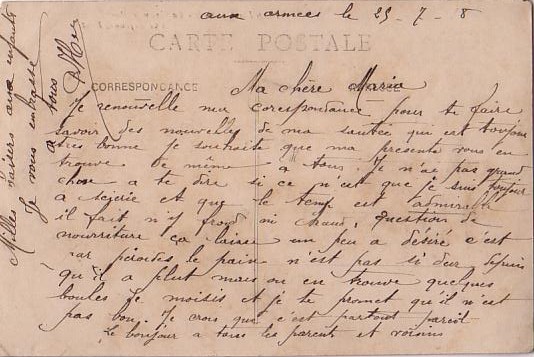 aux armées le 25-7-8
CARTE POSTALE
CORRESPONDANCE
Ma chère Maria
Je renouvelle ma corespondance pour te faire
savoir des nouvelle de ma santée qui est toujour
tres bonne je souhaite que ma presente vous en
trouve de même a tous. Je n'ai pas grand
chose a te dire si ce n'est que je suis toujour
a et que le temp est admirable
il fait n'y froid ni chaud, question de
nourriture ça laisse un peu a désiré c'est
par périodes le pain n'est pas si dur depuis
qu'il a plut mais on en trouve quelques
boules de moisis et je te promet qu'il n'est
pas bon. Je crois que c'est partout pareil
Le bonjour a tous les parents et voisins
Milles baisers aux enfants
Je vous embrasse
a tous